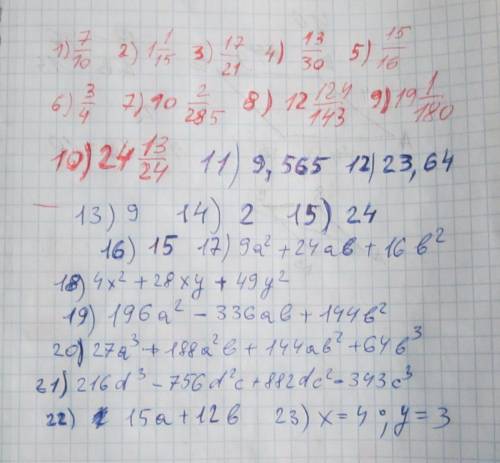 1) 7/10 2) 1 1/15 3) 17/21 4) 13/30 5) 15/16
6) 3/4 7) 10 2/285 8) 12 124/143 9) 19 1/180
10) 24 13/24 11) 9,565 12) 23,64
13) 9 14) 2 15) 24
16) 15 17) 9a² + 24ab + 16b²
18) 4x² + 28xy + 49y²
19) 196a² - 336ab + 144b²
20) 27a³ + 188a²b + 144ab² + 64b³
21) 216d³ - 756d²c + 882dc² - 343c³
22) 15a + 12b 23) x = 4; y = 3